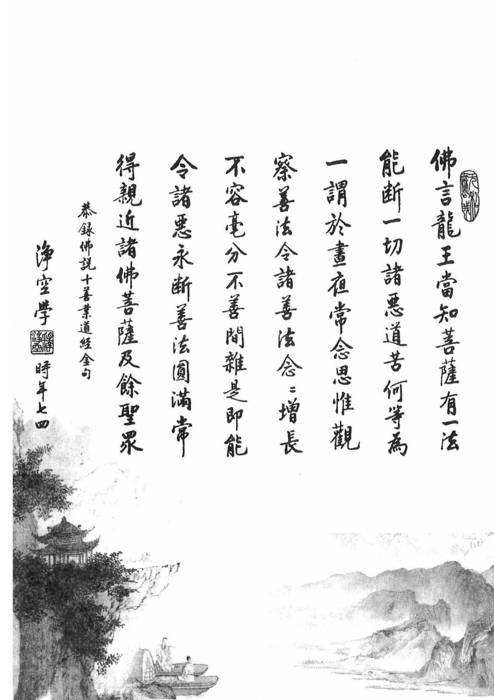 佛言龍王當知菩薩有一法
能斷一切諸惡道苦何等為
一謂於晝夜常念思惟觀
察善法令諸善法念〻增長
不容毫分不善間雜是即能
令諸惡永斷善法圓滿常
得親近諸佛菩薩及餘聖眾
恭錄佛說十善業道經全句
淨空學
時年七四